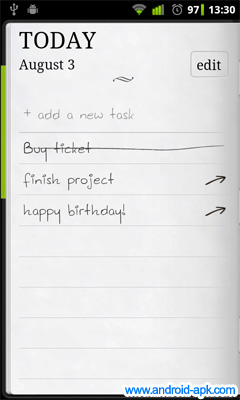 97 13:30
TODAY
August 3
edit
+ add a new task
Buy ticket
finish project
happy birthday!
www.android-apk.com